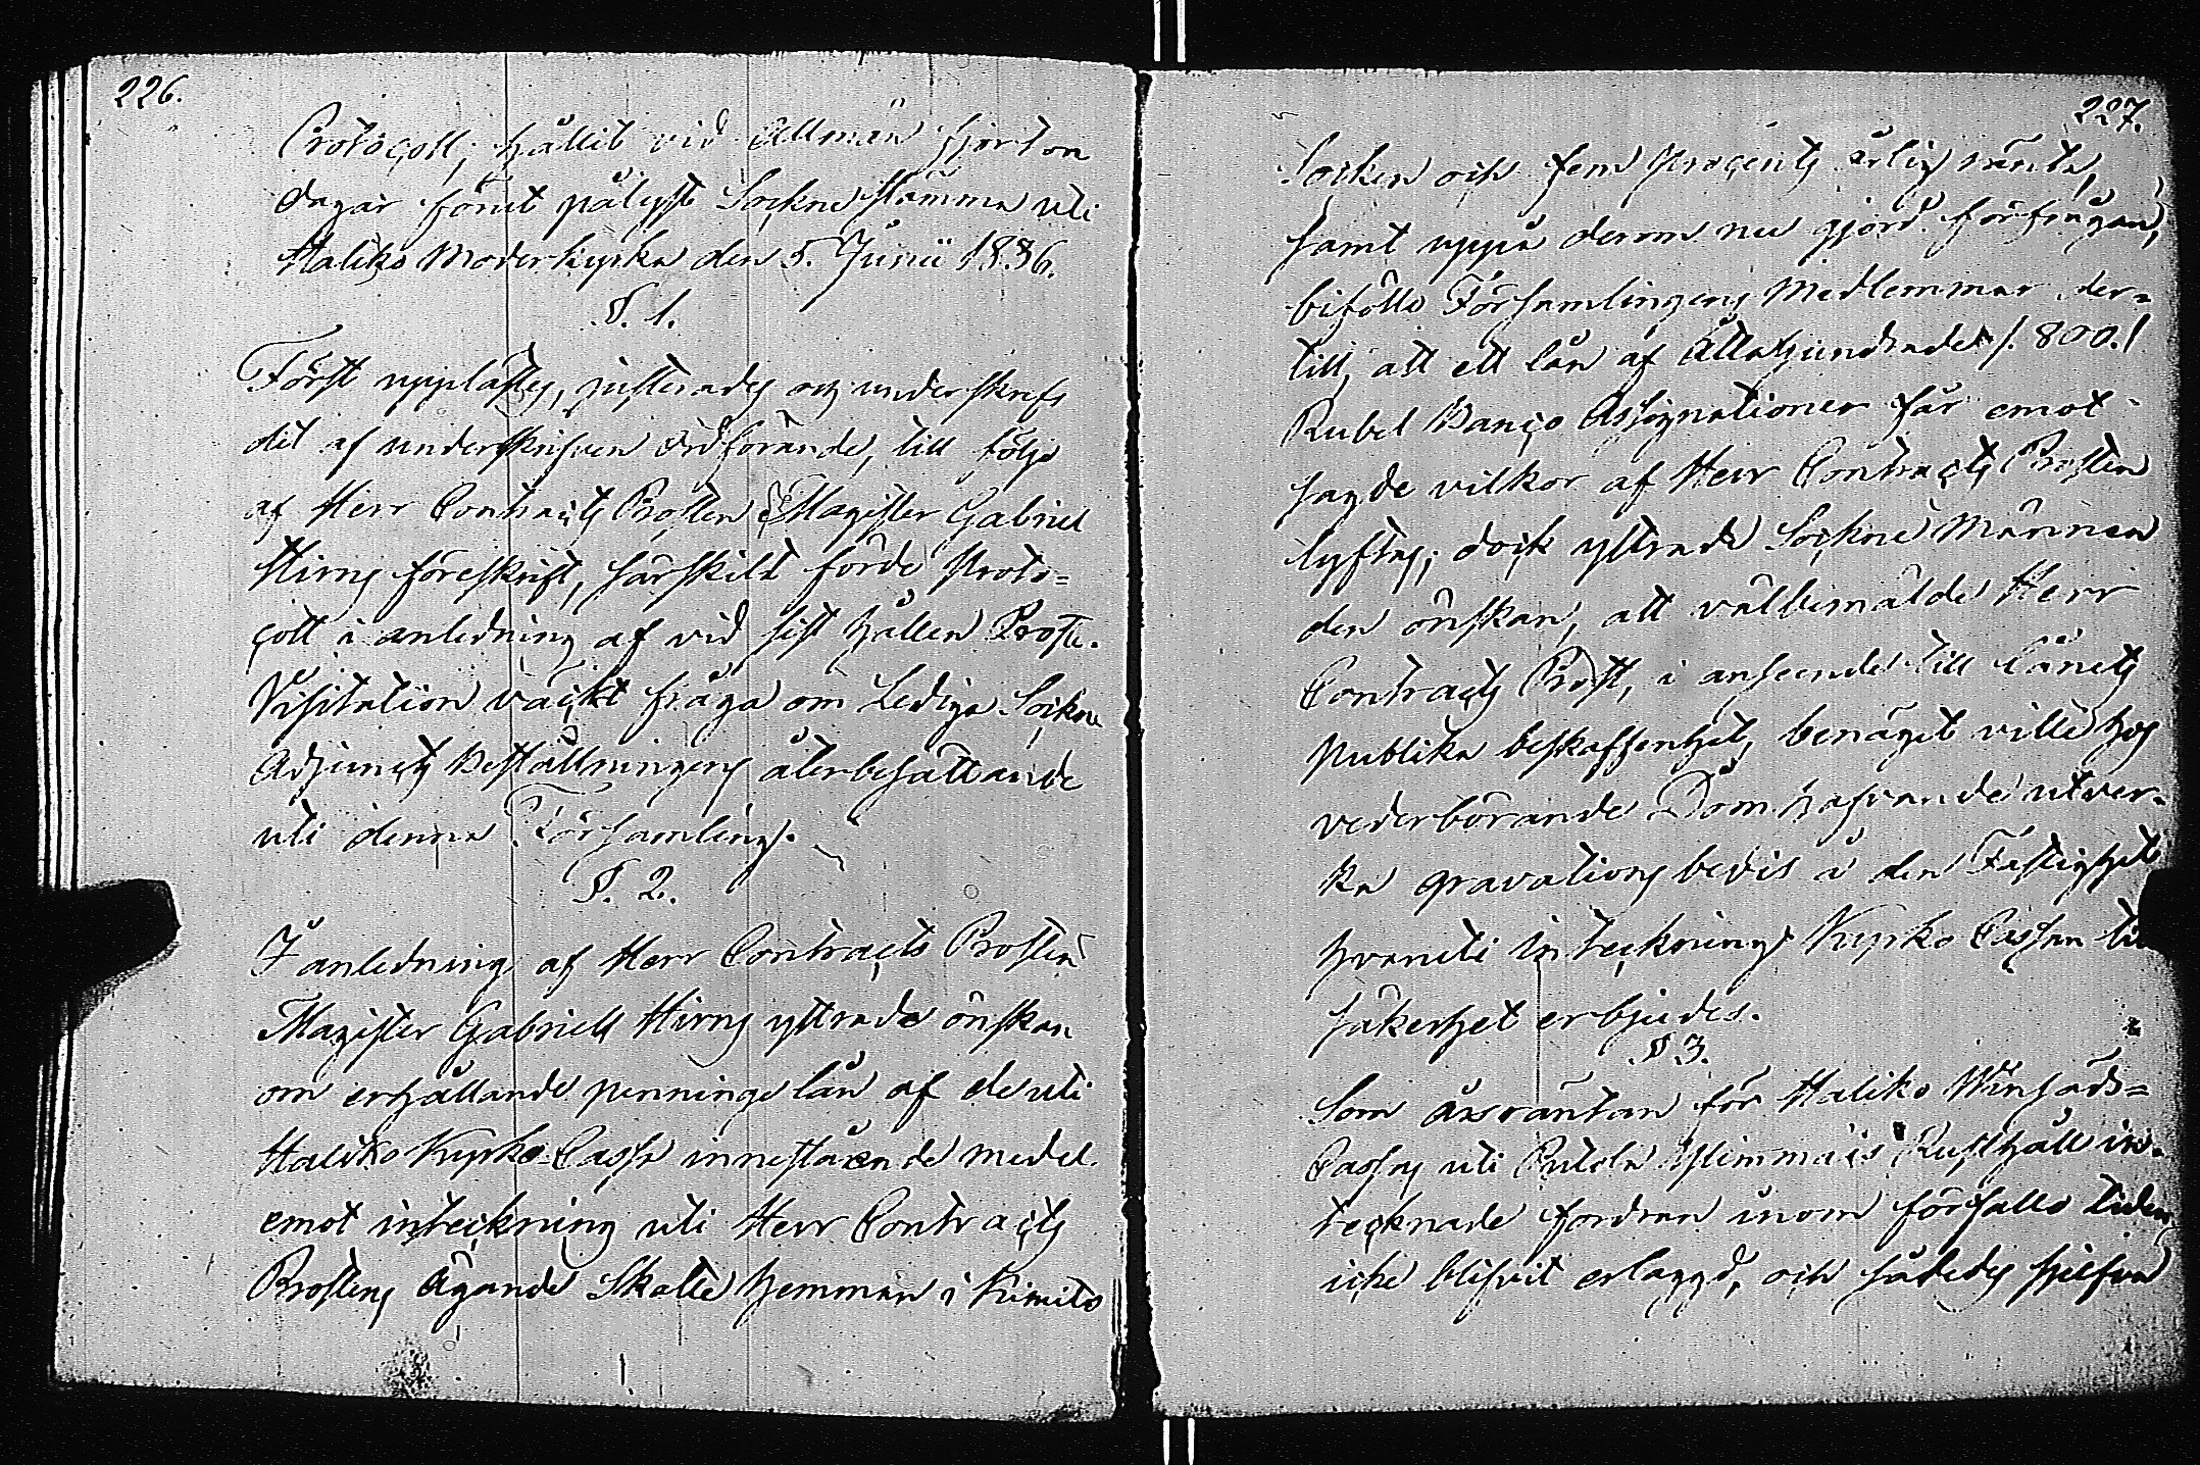 226.
Protocoll, hållit vid Allmän fjorton
dagar förut pålyst Sockne Stämma uti
Haliko Moderkyrka den 5. Junii 1836.
§. 1.
Först upplästes, justerades och underskrefs
det af underskrifven Ordförande, till följe
af Herr Contracts Prosten Magister Gabriel
Hirns föreskrift, särskilt förde Proto=
coll i anledning af vid sist hållen Prosti-
Visitation väckt fråga om Lediga Sockne
Adjuncts Beställningens återbesättande
uti denna Församling.
§. 2.
I anledning af Herr Contracts Prosten
Magister Gabriell Hirns yttrade önskan
om erhållande penninge lån af de uti
Haliko Kyrko-Cassa innestående medel
emot inteckning uti Herr Contracts
Prostens ägande Skatte hemman i Kimito
227.
Socken och fem procents årlig ränta,
samt uppå derom nu gjord förfrågan,
biföllo Församlingens Medlemmar der=
till, att ett lån af Åttahundrade /. 800. /
Rubel Banco Assignationer får emot
sagde vilkor af Herr Contracts Prosten
lyftas; dock yttrade Sockne Männen
den önskan, att välbemälde Herr
Contracts Prost, i anseende till Lånets
publika beskaffenhet, benäget ville hos
vederbörande Domhafvande utver=
ka gravations bevis å den Fastighet
hvaruti inteckning Kyrko Cassan till
säkerhet erbjudes.
§ 3.
Som årsräntan för Haliko
Cassas uti Rusthåll in=
tecknade fordran inom förfallo tiden
icke blifvit erlaggd, och således sjelfva